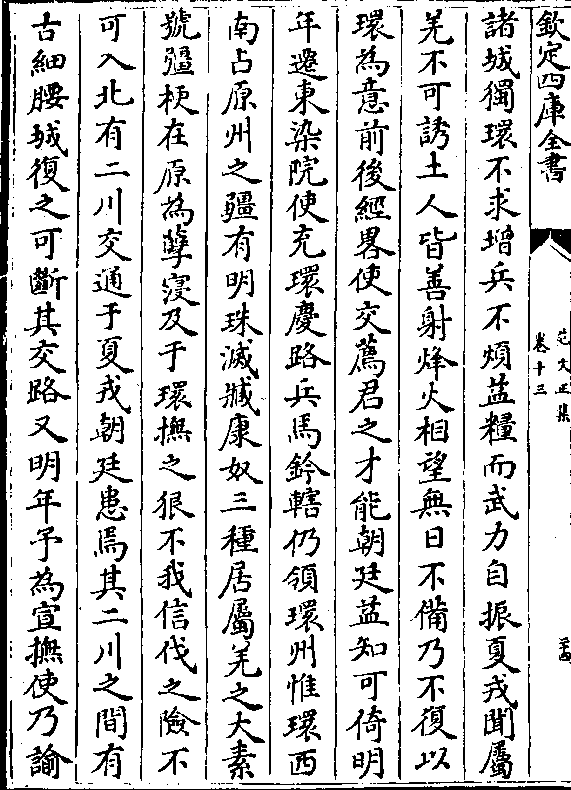 欽定四庫全書
范文正集
卷十三
諸城獨環不求増兵不煩益糧而武力自振夏戎聞屬
羌不可誘土人皆善射烽火相望無日不備乃不復以
環為意前後經畧使交薦君之才能朝廷益知可倚明
年遷東染院使充環慶路兵馬鈐轄仍領環州惟環西
南占原州之疆有明珠滅臧康奴三種居屬羌之大素
號彊梗在原為孽寖及于環撫之狠不我信伐之險不
可入北有二川交通于夏戎朝廷患焉其二川之間有
古細腰城復之可斷其交路又明年予為宣撫使乃諭